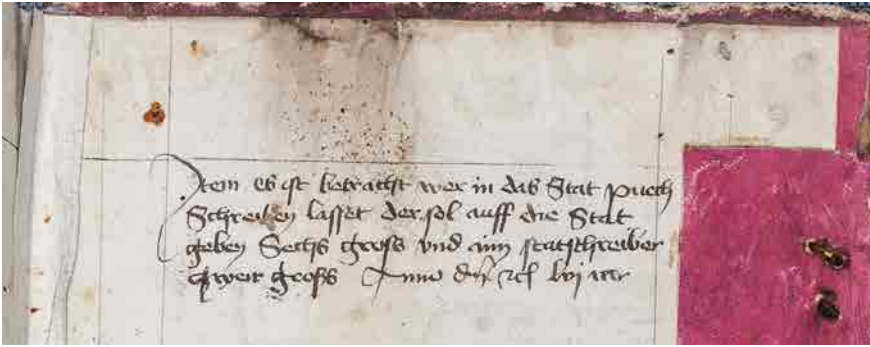 Item es ist betracht wer in das Stat puech
Schreiben lasset der sol auff die Stat
geben Sechs gross vnd aim statschreiber
zwen gross Anno dn̄i